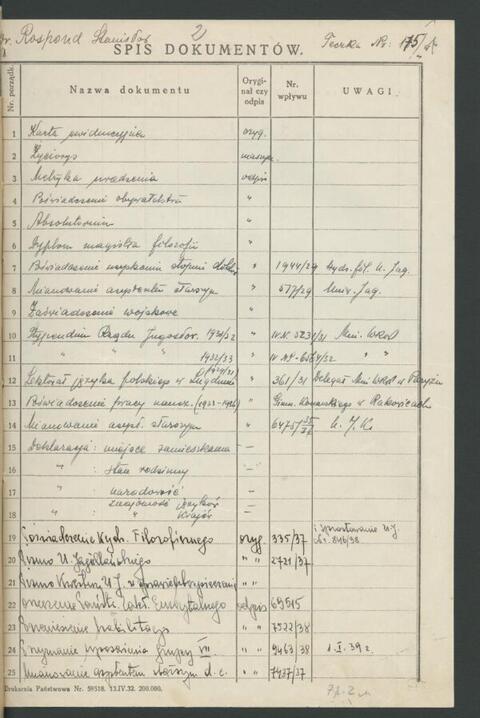 Dr. Rospond Stanisław 2)
SPIS DOKUMENTÓW. Teczka Nr: 175/
Nr. porządk. Nazwa dokumentu Orygi- nał czy odpis Nr. wpływu UWAGI
1 Karta ewidencyjna oryg.
2 Życiorys maszyn.
3 Metryka urodzenia odpis
4 Poświadczenie obywatelstwa "
5 Absolutorium "
6 Dyplom magistra filozofii "
7 Poświadczenie uzyskania stopnia dokt. " 1944/29 Wydz. fil. U. Jag.
8 Mianowanie asystentem starszym " 577/29 Uniw. Jag.
9 Zaświadczenie wojskowe "
10 Stypendium Rządu Jugosłow. 1930/32 " IV.N. 5231/31 Min. WRiOP
11 " " " 1932/33 " " "
12 Lektorat języka polskiego w Lugdunie " 361/31 Delegat Min WRiOP w Paryżu
13 Poświadczenie pracy naucz. " Gimn. w Rakowicach
14 Mianowanie asyst. starszym " 6475/35/36 U. J. K.
15 Deklaracja: miejsce zamieszkania —
16 " : stan rodzinny —
17 " : narodowość —
18 " : znajomość języków —
" krajów
19 Poświadczenie Wydz. Filozoficznego oryg. 335/37 i sprostowanie U.J. 846/38
20 Pismo U. Jagiellońskiego " " 2721/37
21 Pismo Kwestury U.J. " "
22 Orzeczenie Państw. Zakł. Emerytalnego odpis 69515
23 Zatwierdzenie habilitacji " " 7522/38
24 Przyznanie uposażenia grupy VII " " 9463/38 1.X.39 r.
25 Mianowanie asystentem starszym d. c. " " 7437/37
Drukarnia Państwowa Nr. 59518. 13.IV.32. 200.000.